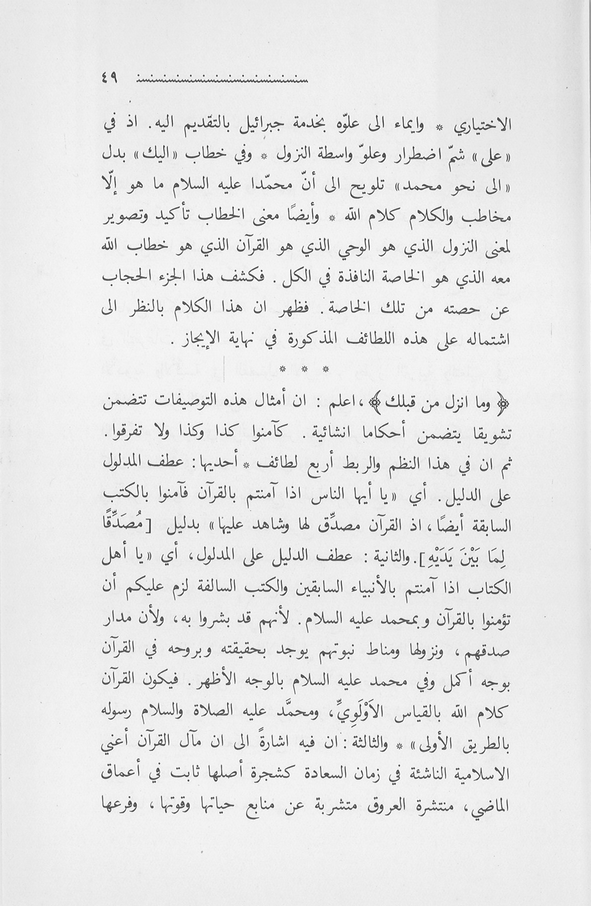 ٤٩
الاختياري * وايماء الى علوّه بخدمة جبرائيل بالتقديم اليه. اذ في
«على» شمّ اضطرار وعلوّ واسطة النزول * وفي خطاب «اليك» بدل
«الى نحو محمد» تلويح الى أنّ محمّدا عليه السلام ما هو إلّا
مخاطب والكلام كلام الله * وأيضًا معنى الخطاب تأكيد وتصوير
لمعنى النزول الذي هو الوحي الذي هو القرآن الذي هو خطاب الله
معه الذي هو الخاصة النافذة في الكل. فكشف هذا الجزء الحجاب
عن حصته من تلك الخاصة. فظهر ان هذا الكلام بالنظر الى
اشتماله على هذه اللطائف المذكورة في نهاية الإيجاز.
* * *
﴿وما انزل من قبلك﴾، اعلم : ان أمثال هذه التوصيفات تتضمن
تشويقا يتضمن أحكاما انشائية. كآمنوا كذا وكذا ولا تفرقوا.
ثم ان في هذا النظم والربط أربع لطائف * أحديها : عطف المدلول
على الدليل. أي «يا أيها الناس اذا آمنتم بالقرآن فآمنوا بالكتب
السابقة أيضًا، اذ القرآن مصدِّق لها وشاهد عليها» بدليل [مُصَدِّقًا
لِمَا بَيْنَ يَدَيْهِ]. والثانية : عطف الدليل على المدلول، أي «يا أهل
الكتاب اذا آمنتم بالأنبياء السابقين والكتب السالفة لزم عليكم أن
تؤمنوا بالقرآن وبمحمد عليه السلام. لأنهم قد بشروا به، ولأن مدار
صدقهم، ونزولها ومناط نبوتهم يوجد بحقيقته وبروحه في القرآن
بوجه أكمل وفي محمد عليه السلام بالوجه الأظهر. فيكون القرآن
كلام الله بالقياس الأوْلَوِيِّ، ومحمَّد عليه الصلاة والسلام رسوله
بالطريق الأولى» * والثالثة : ان فيه اشارةً الى ان مآل القرآن أعني
الاسلامية الناشئة في زمان السعادة كشجرة أصلها ثابت في أعماق
الماضي، منتشرة العروق متشربة عن منابع حياتها وقوتها، وفرعها